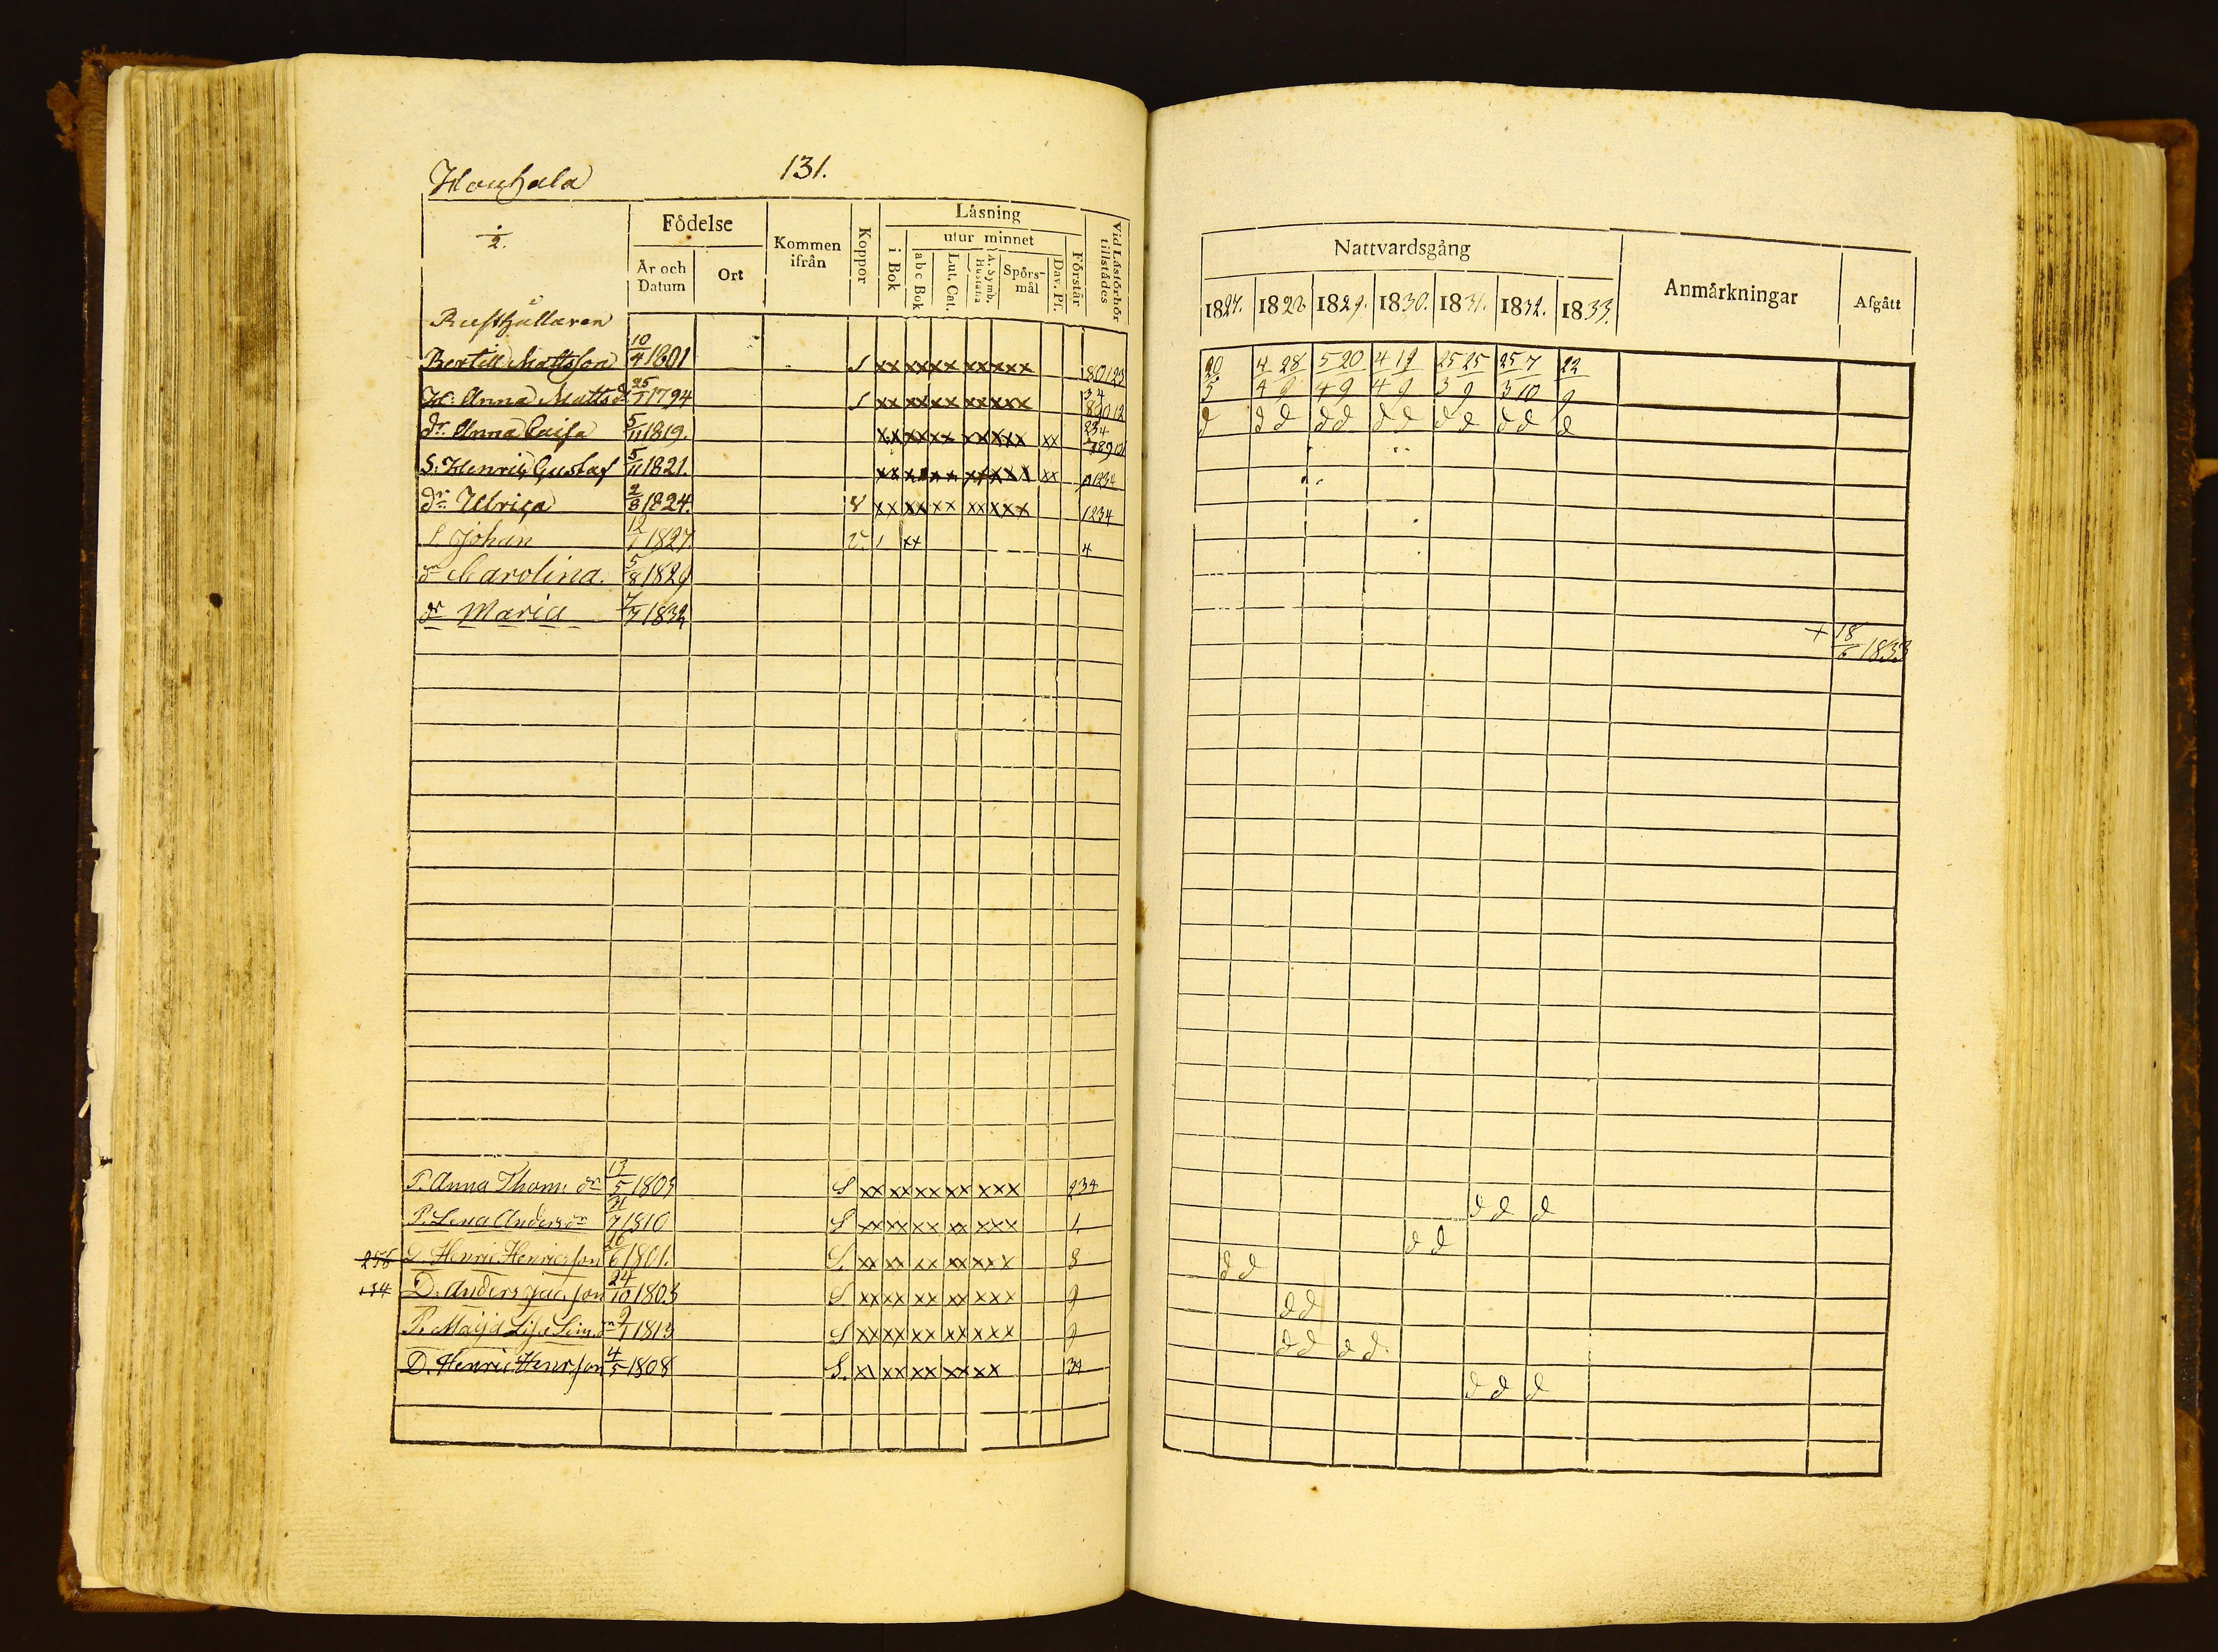 131.
÷
2.
Födelse
År och Datum
Ort
Kommen ifrån
Koppor
Läsning
i Bok
utur minnet
abc Bok
Lut. Cat.
A. Symb. Hustafla
Spörsmål
Dav. Ps.
Förstår
Vid Läsförhör tillstädes
Nattvardsgång
1827. 1828 1829. 1830. 1831. 1832. 1833.
Anmärkningar
Afgått
Rusthållaren
Bertill Mattsson 10/4 1801 S xx xx xx xx xxx 80123 20/5 4/4 28/9 5/4 20/9 4/4 19/9 25/3 25/9 25/3 7/10 22/9
H: Anna Matts dr 25/7 1794 S xx xx xx xx xxx 34 89012 d dd dd dd dd dd d
dr Anna Caisa 5/11 1819. xx xx xx xx xxx xx 234
S: Henric Gustaf 5/11 1821. xx xx xx xx xxx xx 1234
dr Ulrica 2/8 1824. V xx xx xx xx xxx 1234
S. Johan 12/1 1827. V. 1 xx 4
dr Carolina. 5/8 1829
dr Maria 7/7 1832 + 18/6 1833
P. Anna Thom. dr 13/5 1805 S xx xx xx xx xxx 234 dd d
P. Lena Anders dr 7 1810 S xx xx xx xx xxx 1 dd
256 D. Henric Henricsson 26/6 1801. S. xx xx xx xx xxx 8 dd
134 D. Anders Jac.son 24/10 1803 S. xx xx xx xx xxx 9 dd
P. Maja Lisa Sim.dr 9/1 1813 S xx xx xx xx xxx 9 dd dd
D. Henric Henrsson 4/5 1808 S. x1 xx xx xx xx 34 dd d